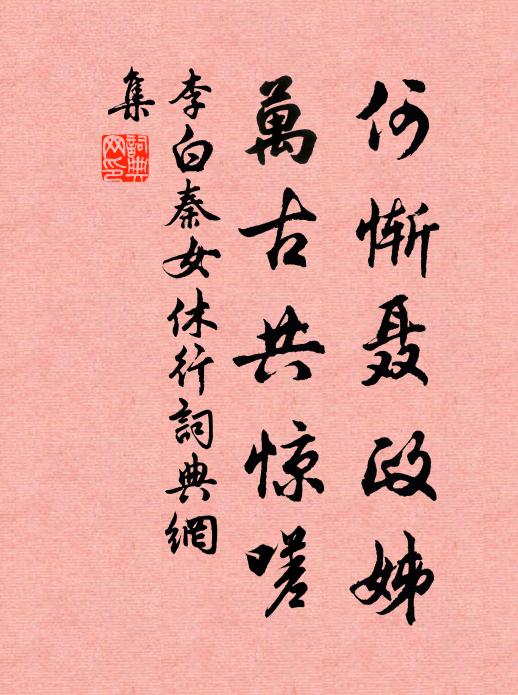 何惭聂政姊
萬古共惊嗟
李白秦女休行詞典網
集
詞典网印